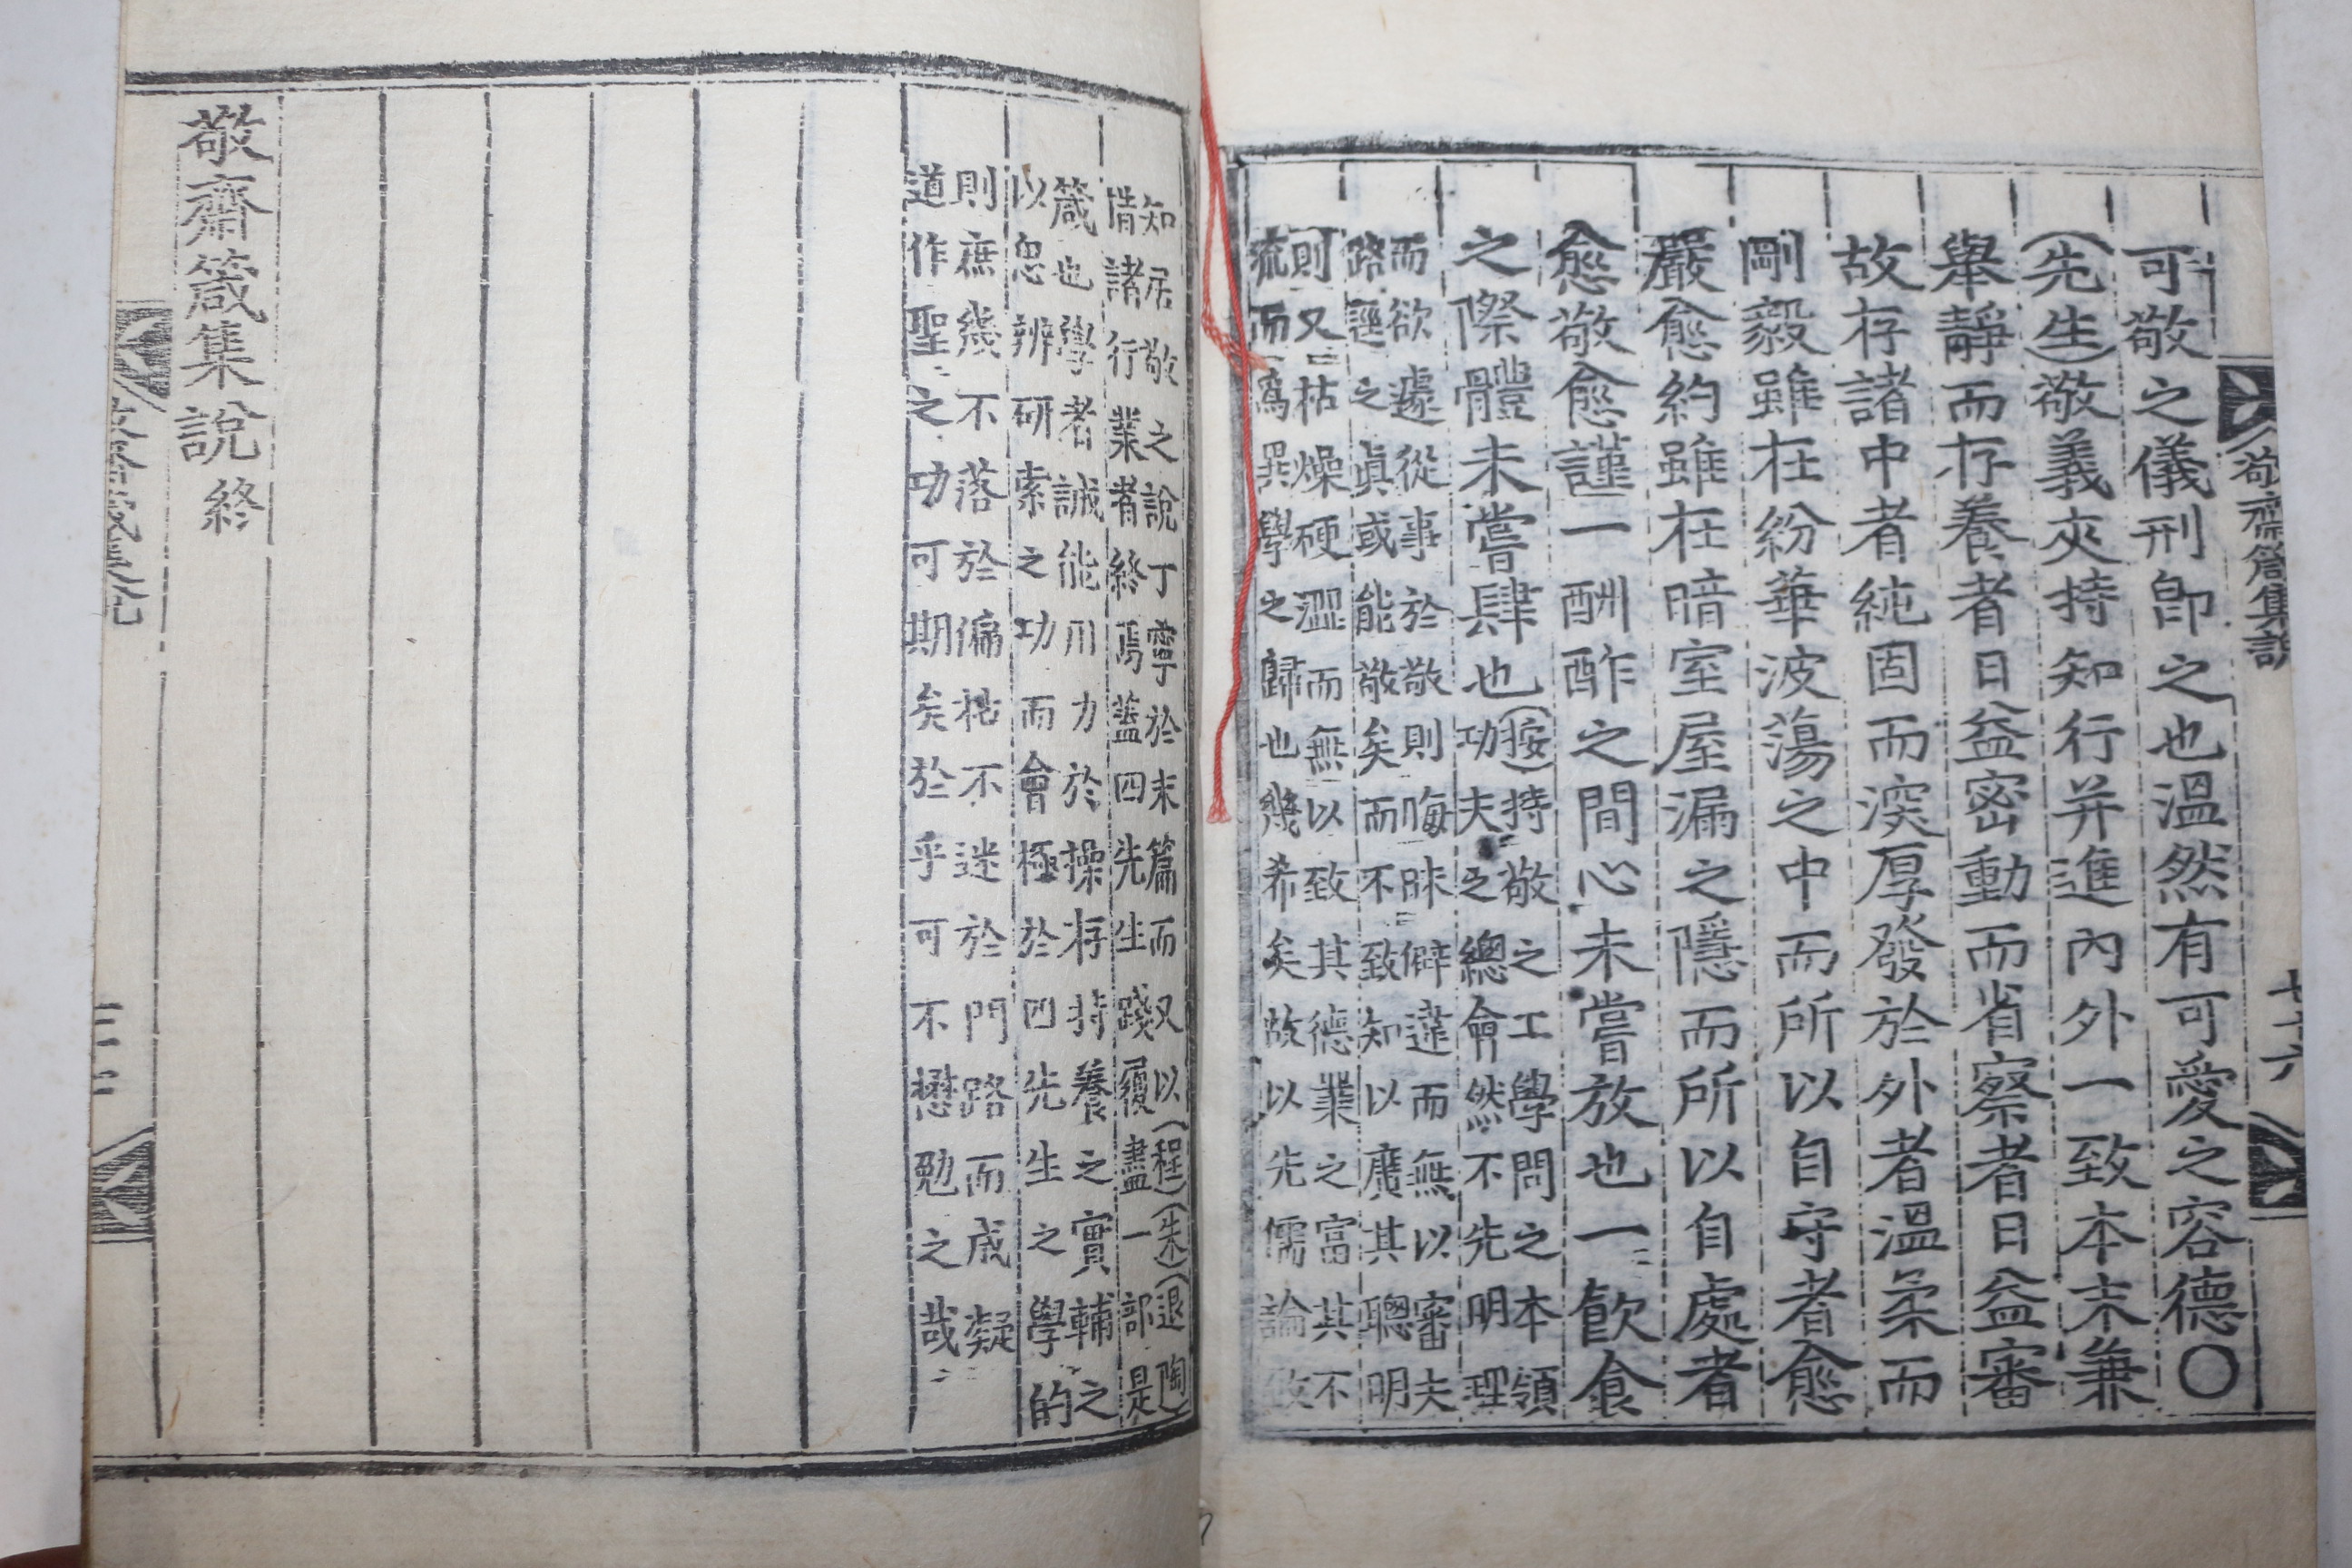 敬齋箴集說
廿六
可敬之儀刑卽之也溫然有可愛之容德〇
先生敬義夾持知行并進內外一致本末兼
舉靜而存養者日益密動而省察者日益審
故存諸中者純固而深厚發於外者溫柔而
剛毅雖在紛華波蕩之中而所以自守者愈
嚴愈約雖在暗室屋漏之隱而所以自處者
愈敬愈謹一酬酢之間心未嘗放也一飮食
之際體未嘗肆也按持敬之工學問之本領
功夫之總會然不先明理
而欲遽從事於敬則晦昧僻違而無以審夫
路逕之眞或能敬矣而不致知以廣其聰明
則又枯燥硬澀而無以致其德業之富其不
流而爲異學之歸也幾希矣故以先儒論致
知居敬之說丁寧於末篇而又以程朱退陶
措諸行業者終焉蓋四先生踐履盡一部是
箴也學者誠能用力於操存持養之實輔之
以思辨研索之功而會極於四先生之學的
則庶幾不落於偏枯不迷於門路而成凝
道作聖之功可期矣於乎可不懋勉之哉
敬齋箴集說終